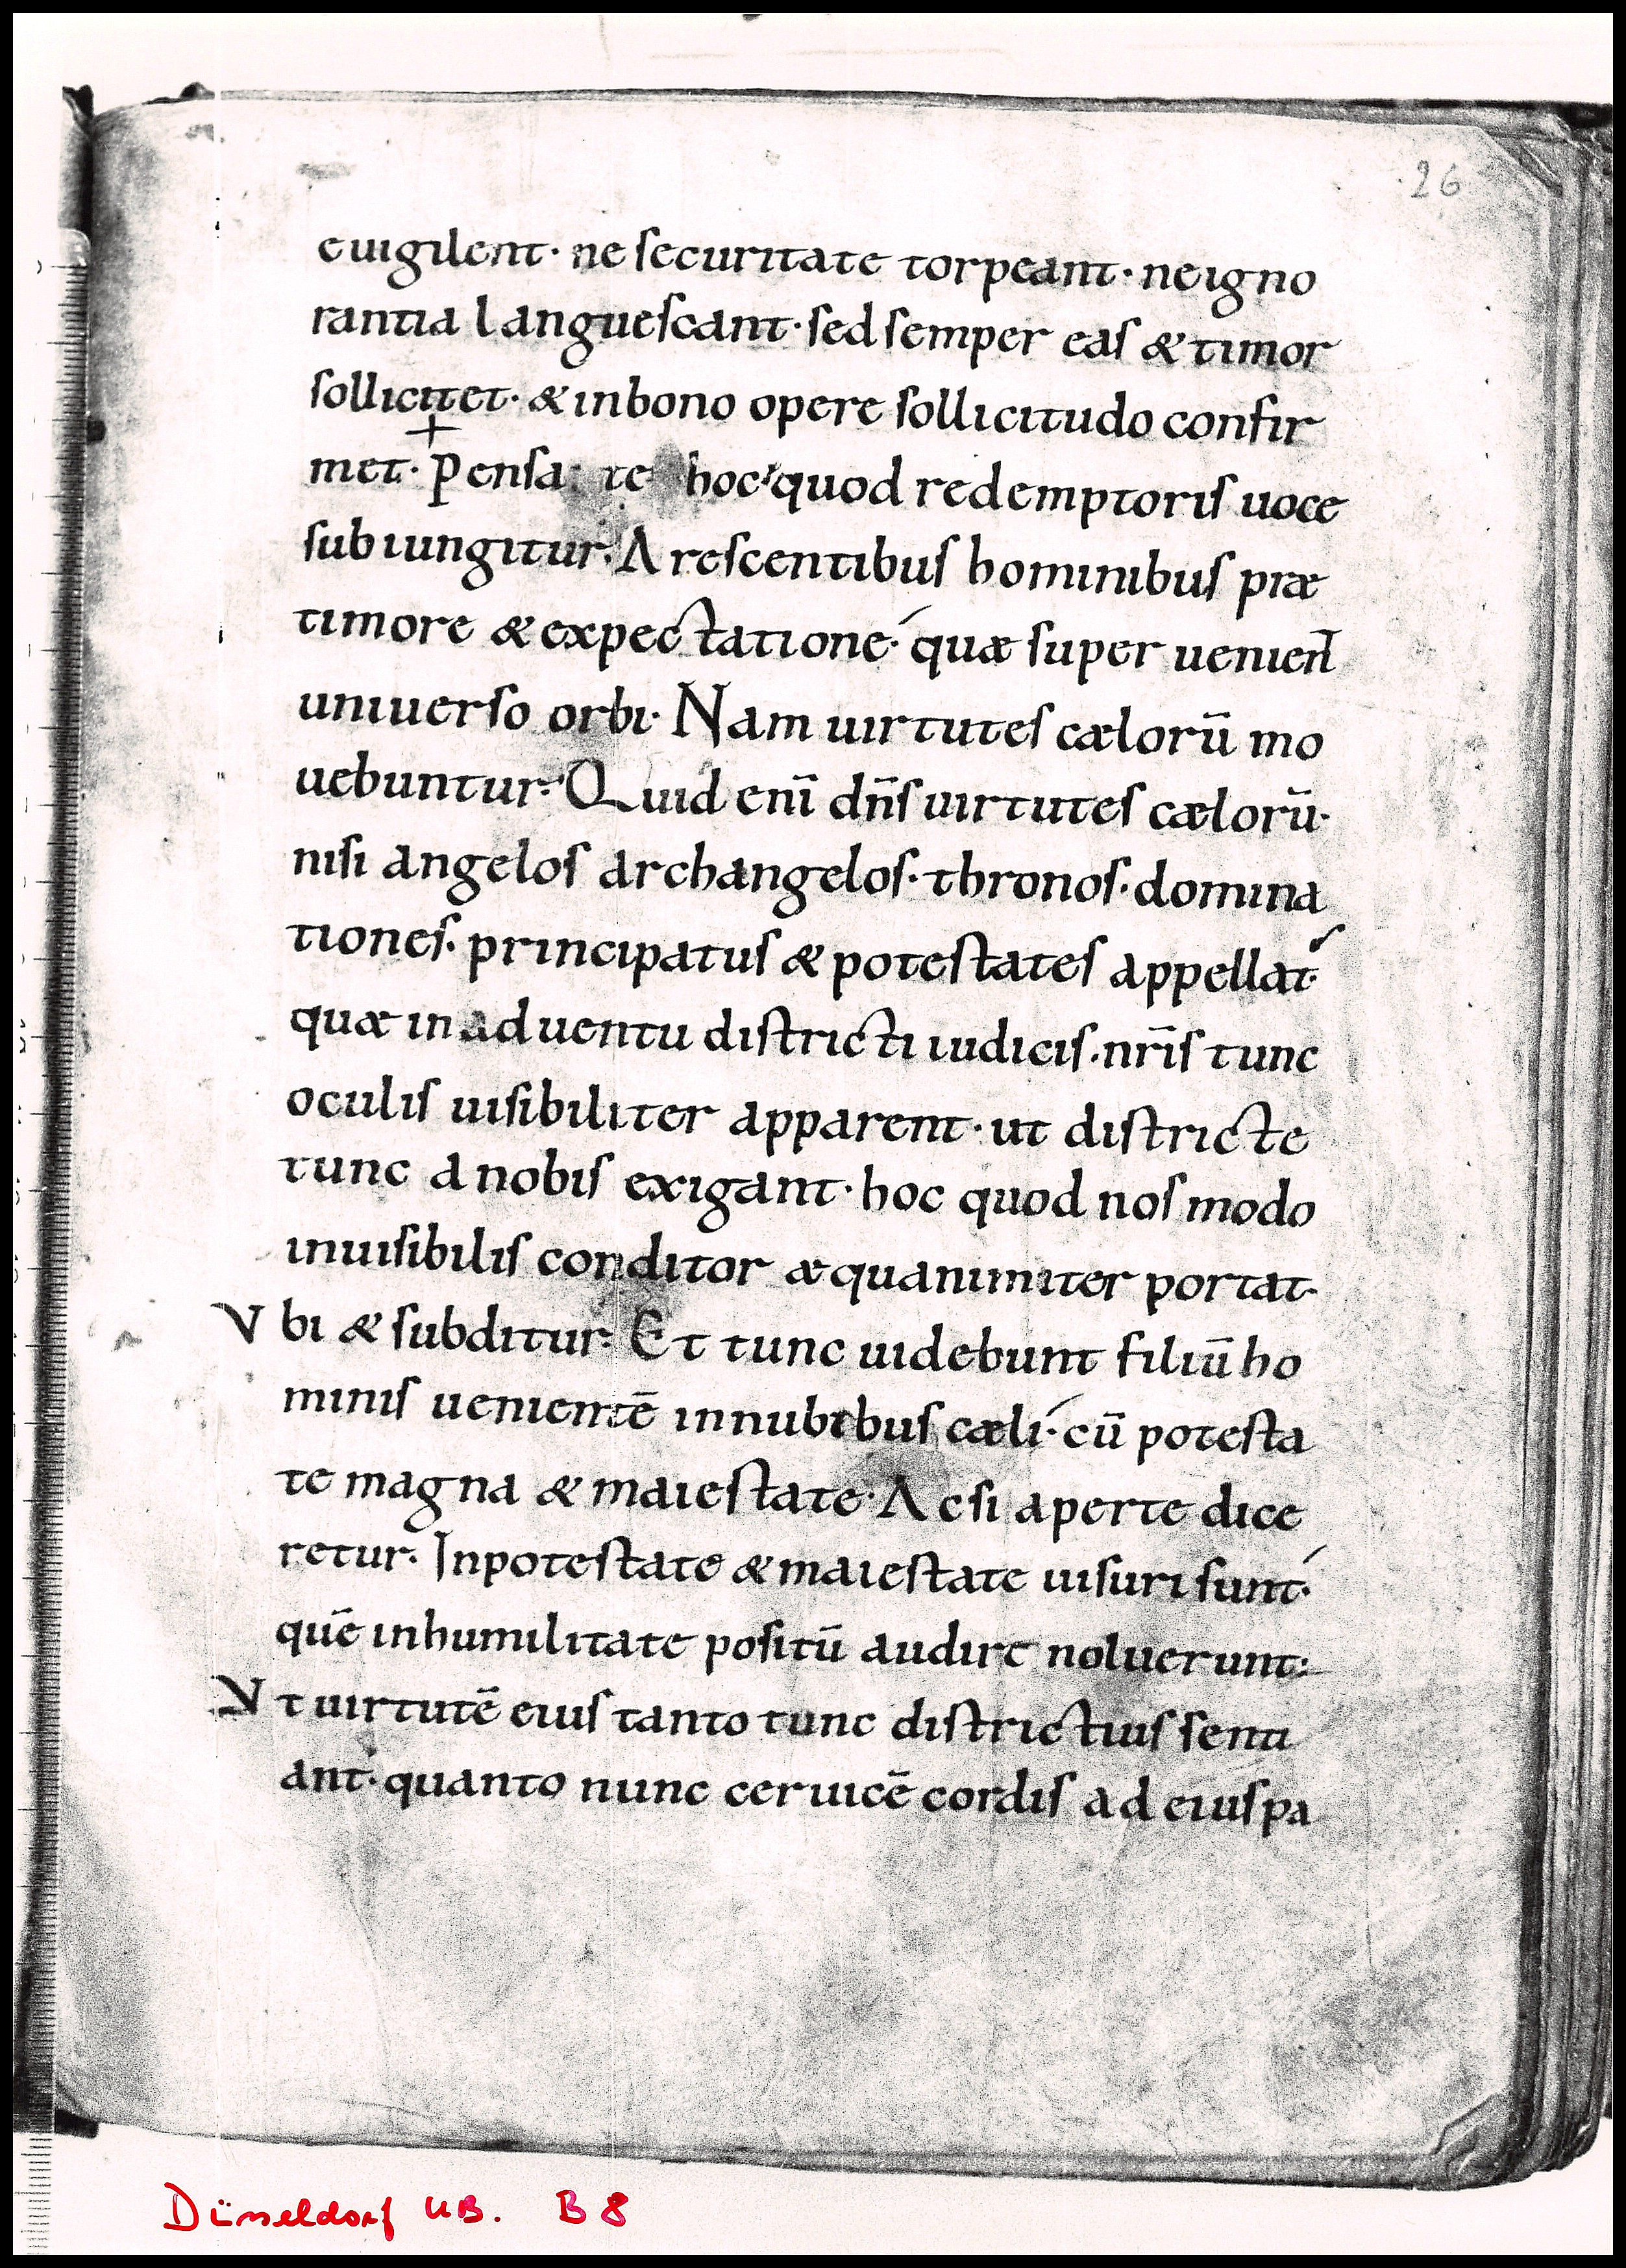 26
euigilent· ne securitate torpeant· neigno
rantia languescant· sed semper eas & timor
sollicitet· & inbono opere sollicitudo confir
met· Pensa te hoc quod redemptoris uoce
subiungitur· Arescentibus hominibus præ
timore & expectatione· quæ super uenient̄
uniuerso orbi· Nam uirtutes cælorū mo
uebuntur· Quid enī dn̄s uirtutes cælorū·
nisi angelos archangelos· thronos· domina
tiones· principatus & potestates appellat·
quæ in aduentu districti iudicis· nr̄is tunc
oculis uisibiliter apparent· ut districte
tunc a nobis exigant· hoc quod nos modo
inuisibilis conditor æquanimiter portat·
Vbi & subditur· Et tunc uidebunt filiū ho
minis uenientē innubibus cæli· cū potesta
te magna & maiestate· Acsi aperte dice
retur· Inpotestate & maiestate uisuri sunt·
quē inhumilitate positū audire noluerunt:
Vt uirtutē eius tanto tunc districtius senti
ant· quanto nunc ceruicē cordis ad eius pa
Düsseldorf UB. B 8